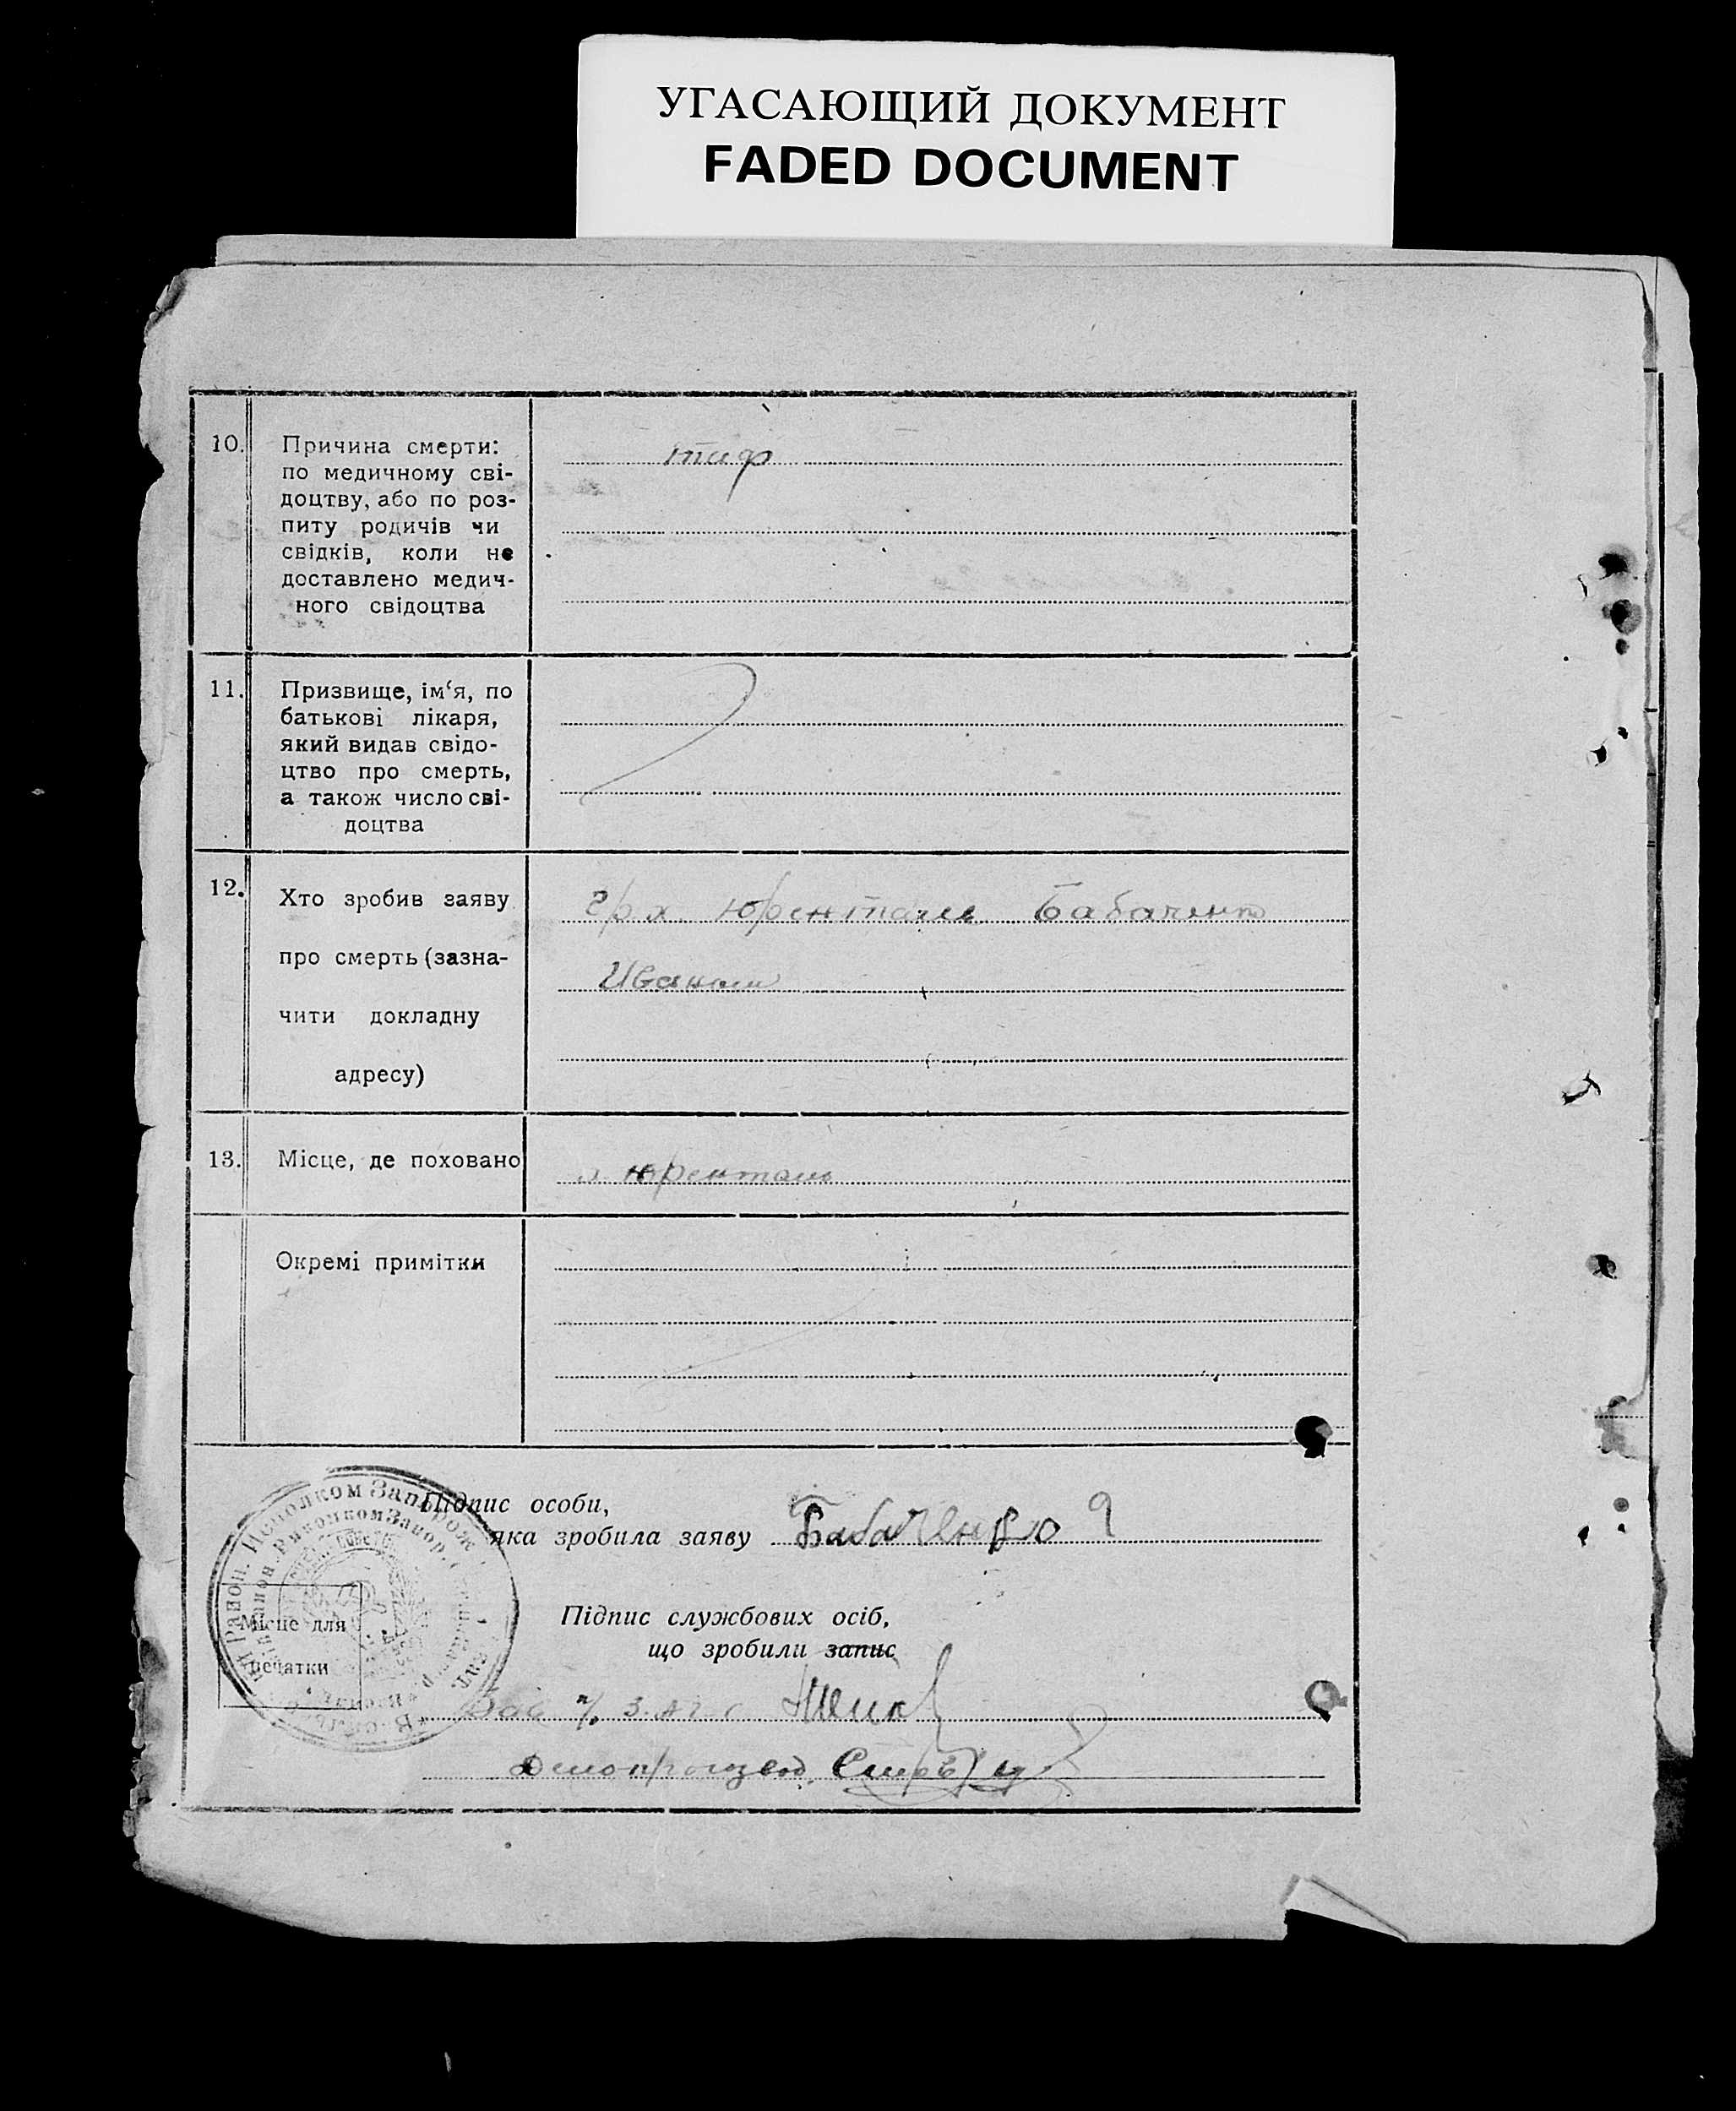 УГАСАЮЩИЙ ДОКУМЕНТ
FADED DOCUMENT
10.
Причина смерти:
по медичному сві-
доцтву, або по роз-
питу родичів чи
свідків, коли не
доставлено медич-
ного свідоцтва
тиф
11.
Призвище, ім‘я, по
батькові лікаря,
який видав свідо-
цтво про смерть,
а також число сві-
доцтва
12.
Хто зробив заяву
про смерть (зазна-
чити докладну
адресу)
гр. х. Юренталь Бабаченко
Иваном
13.
Місце, де поховано
х Юренталь
Окремі примітки
Підпис особи,
яка зробила заяву
Бабаченко
Місце для
печатки
Підпис службових осіб,
що зробили запис
Зав п/о З.А.Г.С
Делопроизвод.